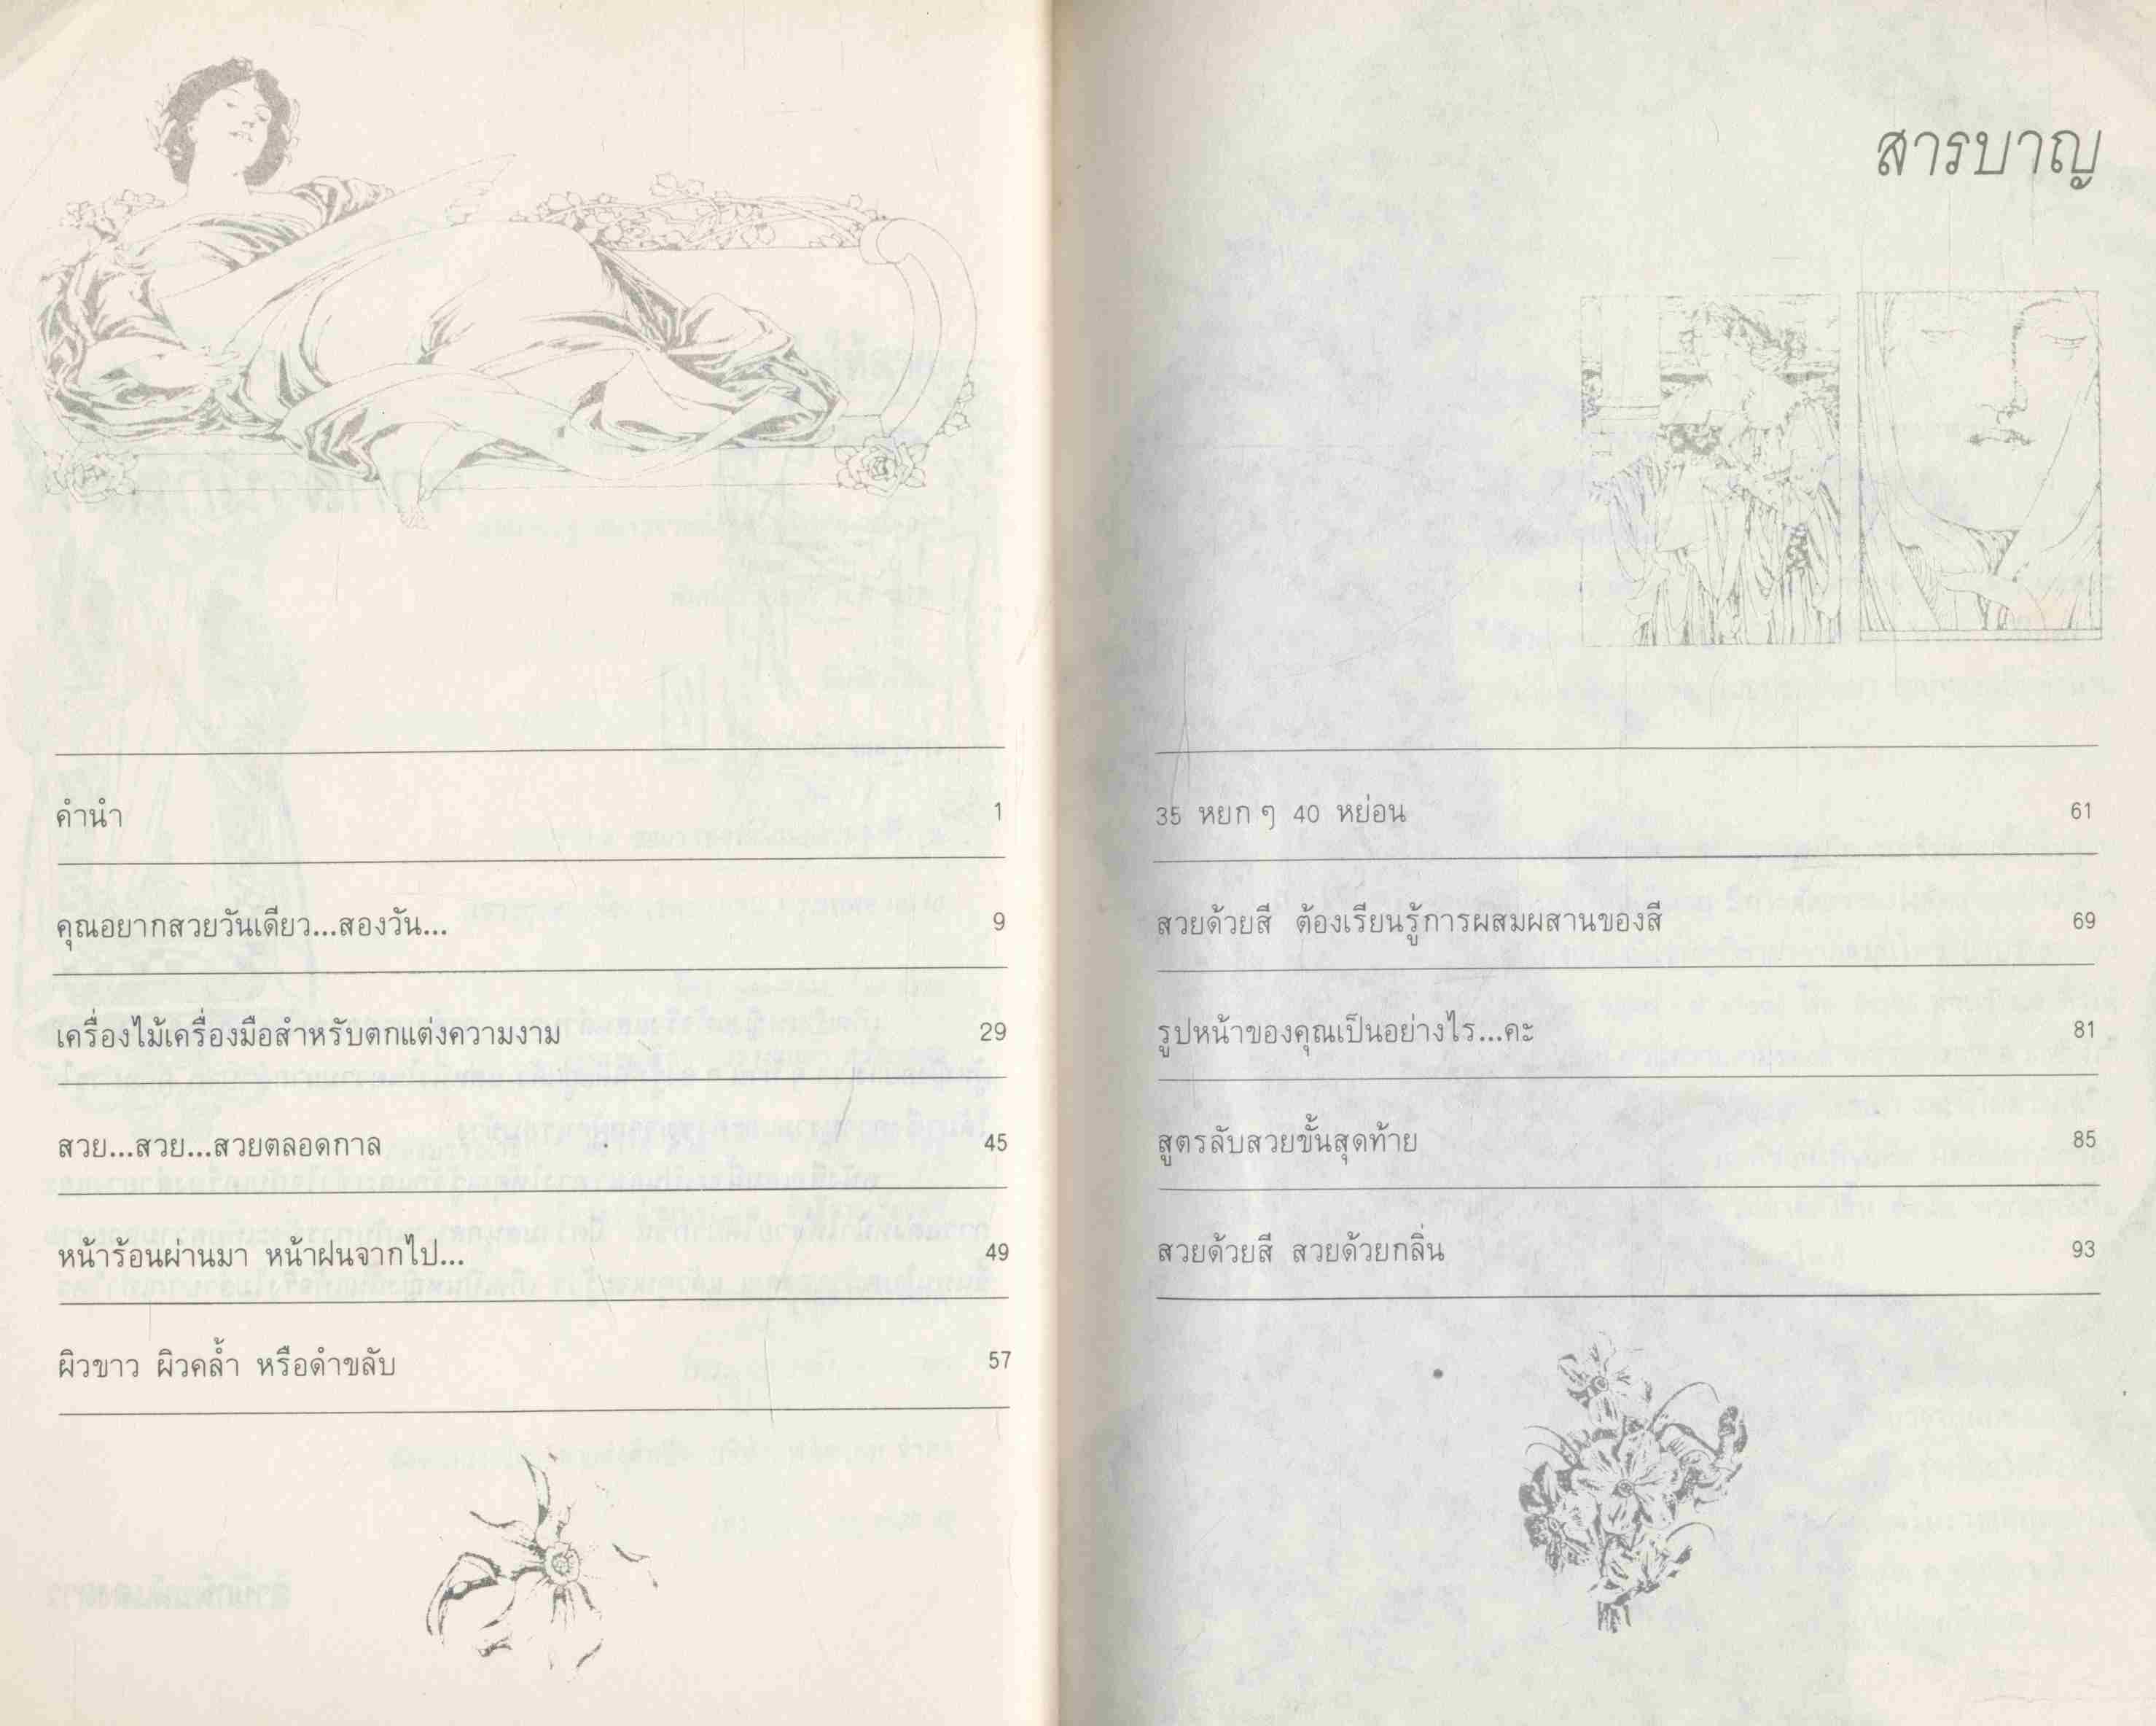 คำนำ 1
คุณอยากสวยวันเดียว...สองวัน... 9
เครื่องไม้เครื่องมือสำหรับตกแต่งความงาม 29
สวย...สวย...สวยตลอดกาล 45
หน้าร้อนผ่านมา หน้าฝนจากไป... 49
ผิวขาว ผิวคล้ำ หรือดำขลับ 57
สารบาญ
35 หยก ๆ 40 หย่อน 61
สวยด้วยสี ต้องเรียนรู้การผสมผสานของสี 69
รูปหน้าของคุณเป็นอย่างไร...คะ 81
สูตรลับสวยขั้นสุดท้าย 85
สวยด้วยสี สวยด้วยกลิ่น 93